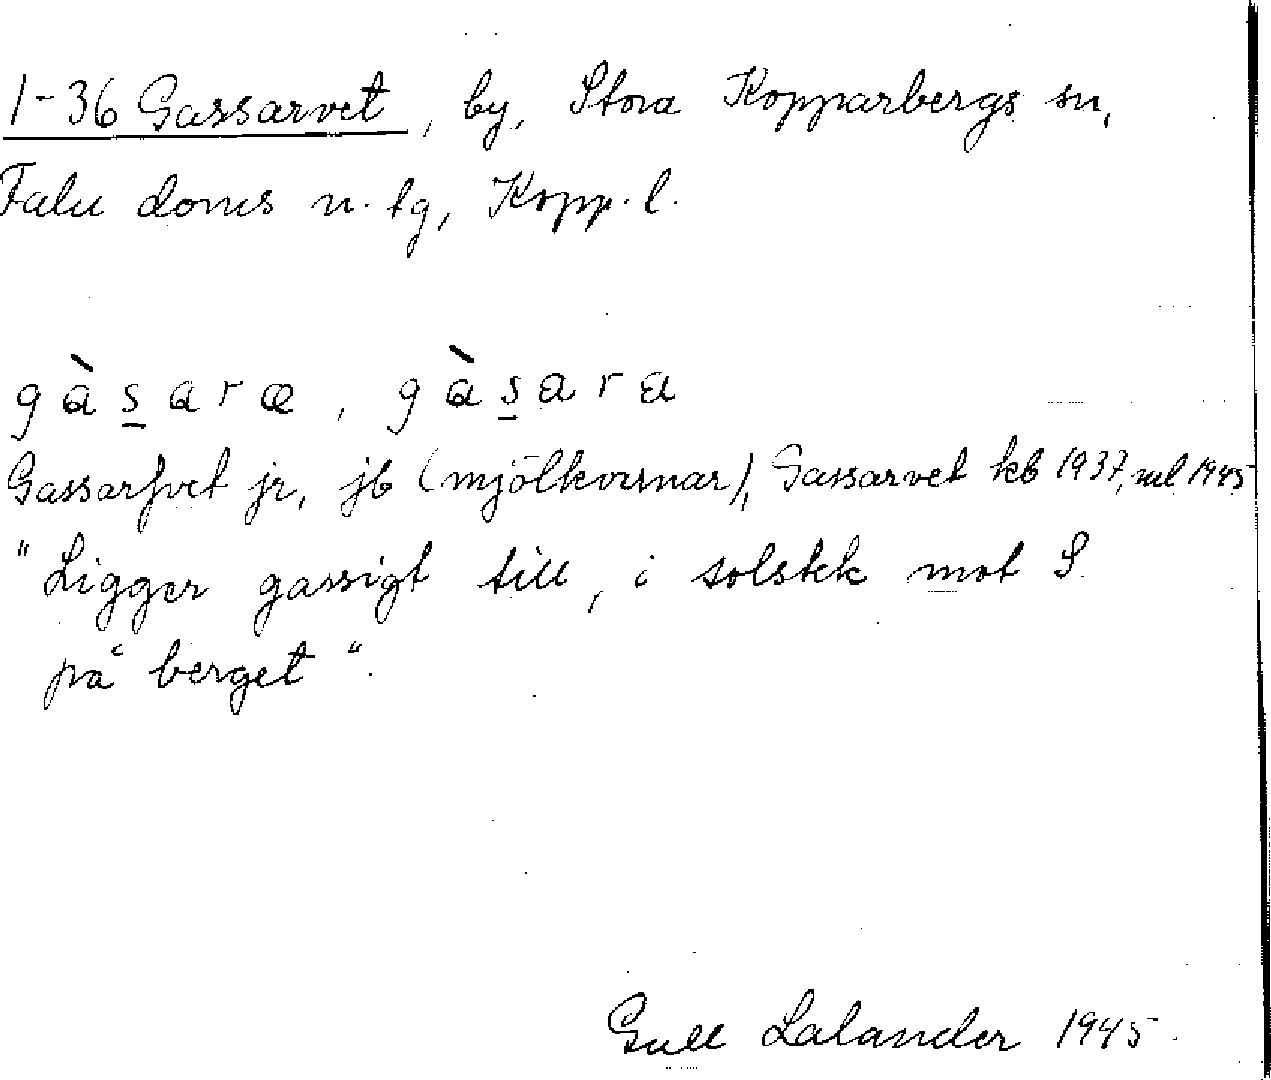 1-36 Gassarvet, by, Stora Kopparbergs sn,
Falu doms n. tg, Kopp. l.
gàsaræ, gàsara
Gassarfvet jr, jb (mjölkvarnar), Gassarvet kb 1937, ml 1945
"Ligger gassigt till, i solstek mot S
på berget".
Gull Lalander 1945.